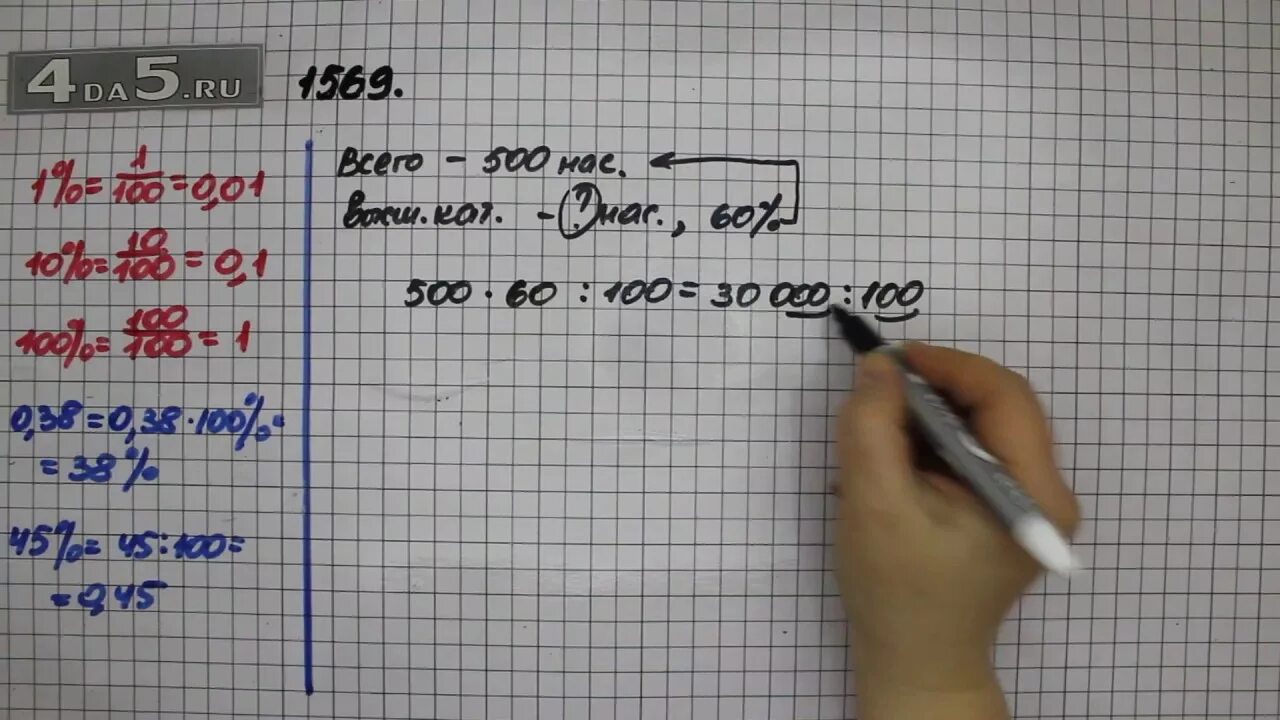 4DA5.RU
1569.
1% = 1/100 = 0,01
10% = 10/100 = 0,1
100% = 100/100 = 1
0,38 = 0,38 · 100% =
= 38%
45% = 45 : 100 =
= 0,45
Всего – 500 нас.
кат. – ? нас., 60%
500 · 60 : 100 = 30 000 : 100